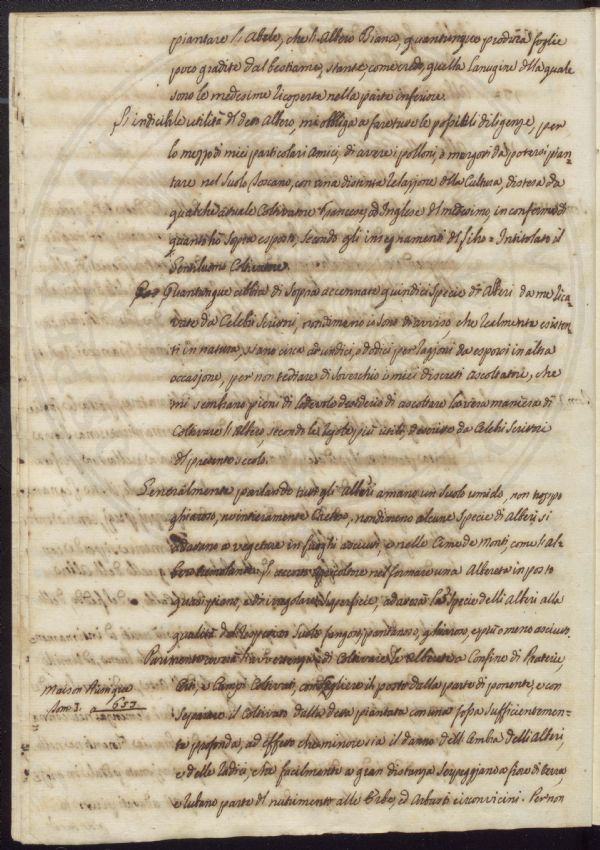 piantare l'Abele, che l'Albero Bianco, quantunque produca foglie
poco gradite dal bestiame, stante, come credo, quella lanugine della quale
sono le medesime ricoperte nella parte inferiore.
L'indicibile utilità del detto Albero, mi obbliga a fare tutte le possibili diligenze, per
lo mezzo di miei particolari Amici, di avere i polloni, o margotti da potersi pian-
tare nel Suolo Toscano, con una distinta relazione della Cultura, distesa da
qualche attuale Coltivatore Francese, od Inglese del medesimo, in conferma di
quanto hò sopra esposto, secondo gli insegnamenti del libro Intitolato il
Gentiluomo Coltivatore.
Quantunque abbia di sopra accennate quindici Specie di Alberi da me rica-
vate da Celebri Scrittori, nondimeno io sono di avviso, che realmente esisten-
ti in natura, siano circa ad undici, o dodici per ragioni da esporsi in altra
occasione, per non tediare di soverchio i miei discreti ascoltatori, che
mi sembrano pieni di lodevole desiderio di ascoltare la vera maniera di
Coltivare l'Albero, secondo le regole più utili, descritte da Celebri Scrittori
del presente secolo.
Generalmente parlando tutti gli Alberi amano un Suolo umido, non troppo
ghiaroso, nè intieramente Cretoso, nondimeno alcune Specie di Alberi si
adattano a vegetare in luoghi asciutti, e nelle Cime de Monti, come l'Al-
bero tremolante. L'accorto Agricoltore nel formare una Albereta in posto
quasi piano, e di irregolare superficie, adatterà la Specie delli Alberi alla
qualità del respettivo Suolo fangoso, pantanoso, ghiaroso, e più o meno asciutto.
Parimente averà l'avvertenza di Coltivare le Alberete a Confine di Praterie,
Orti, e Campi Coltivati, con scegliere il posto dalla parte di ponente, e con
Maison Rustique
tom 3. a 653
separare il Coltivato dalla detta piantata con una fossa sufficientemen-
te profonda, ad effetto che minore sia il danno dell'Ombra delli Alberi,
e delle radici, che facilmente a gran distanza serpeggiano a fiore di terra
e rubano parte del nutrimento alle Erbe, ed Arbusti circonvicini. Per non